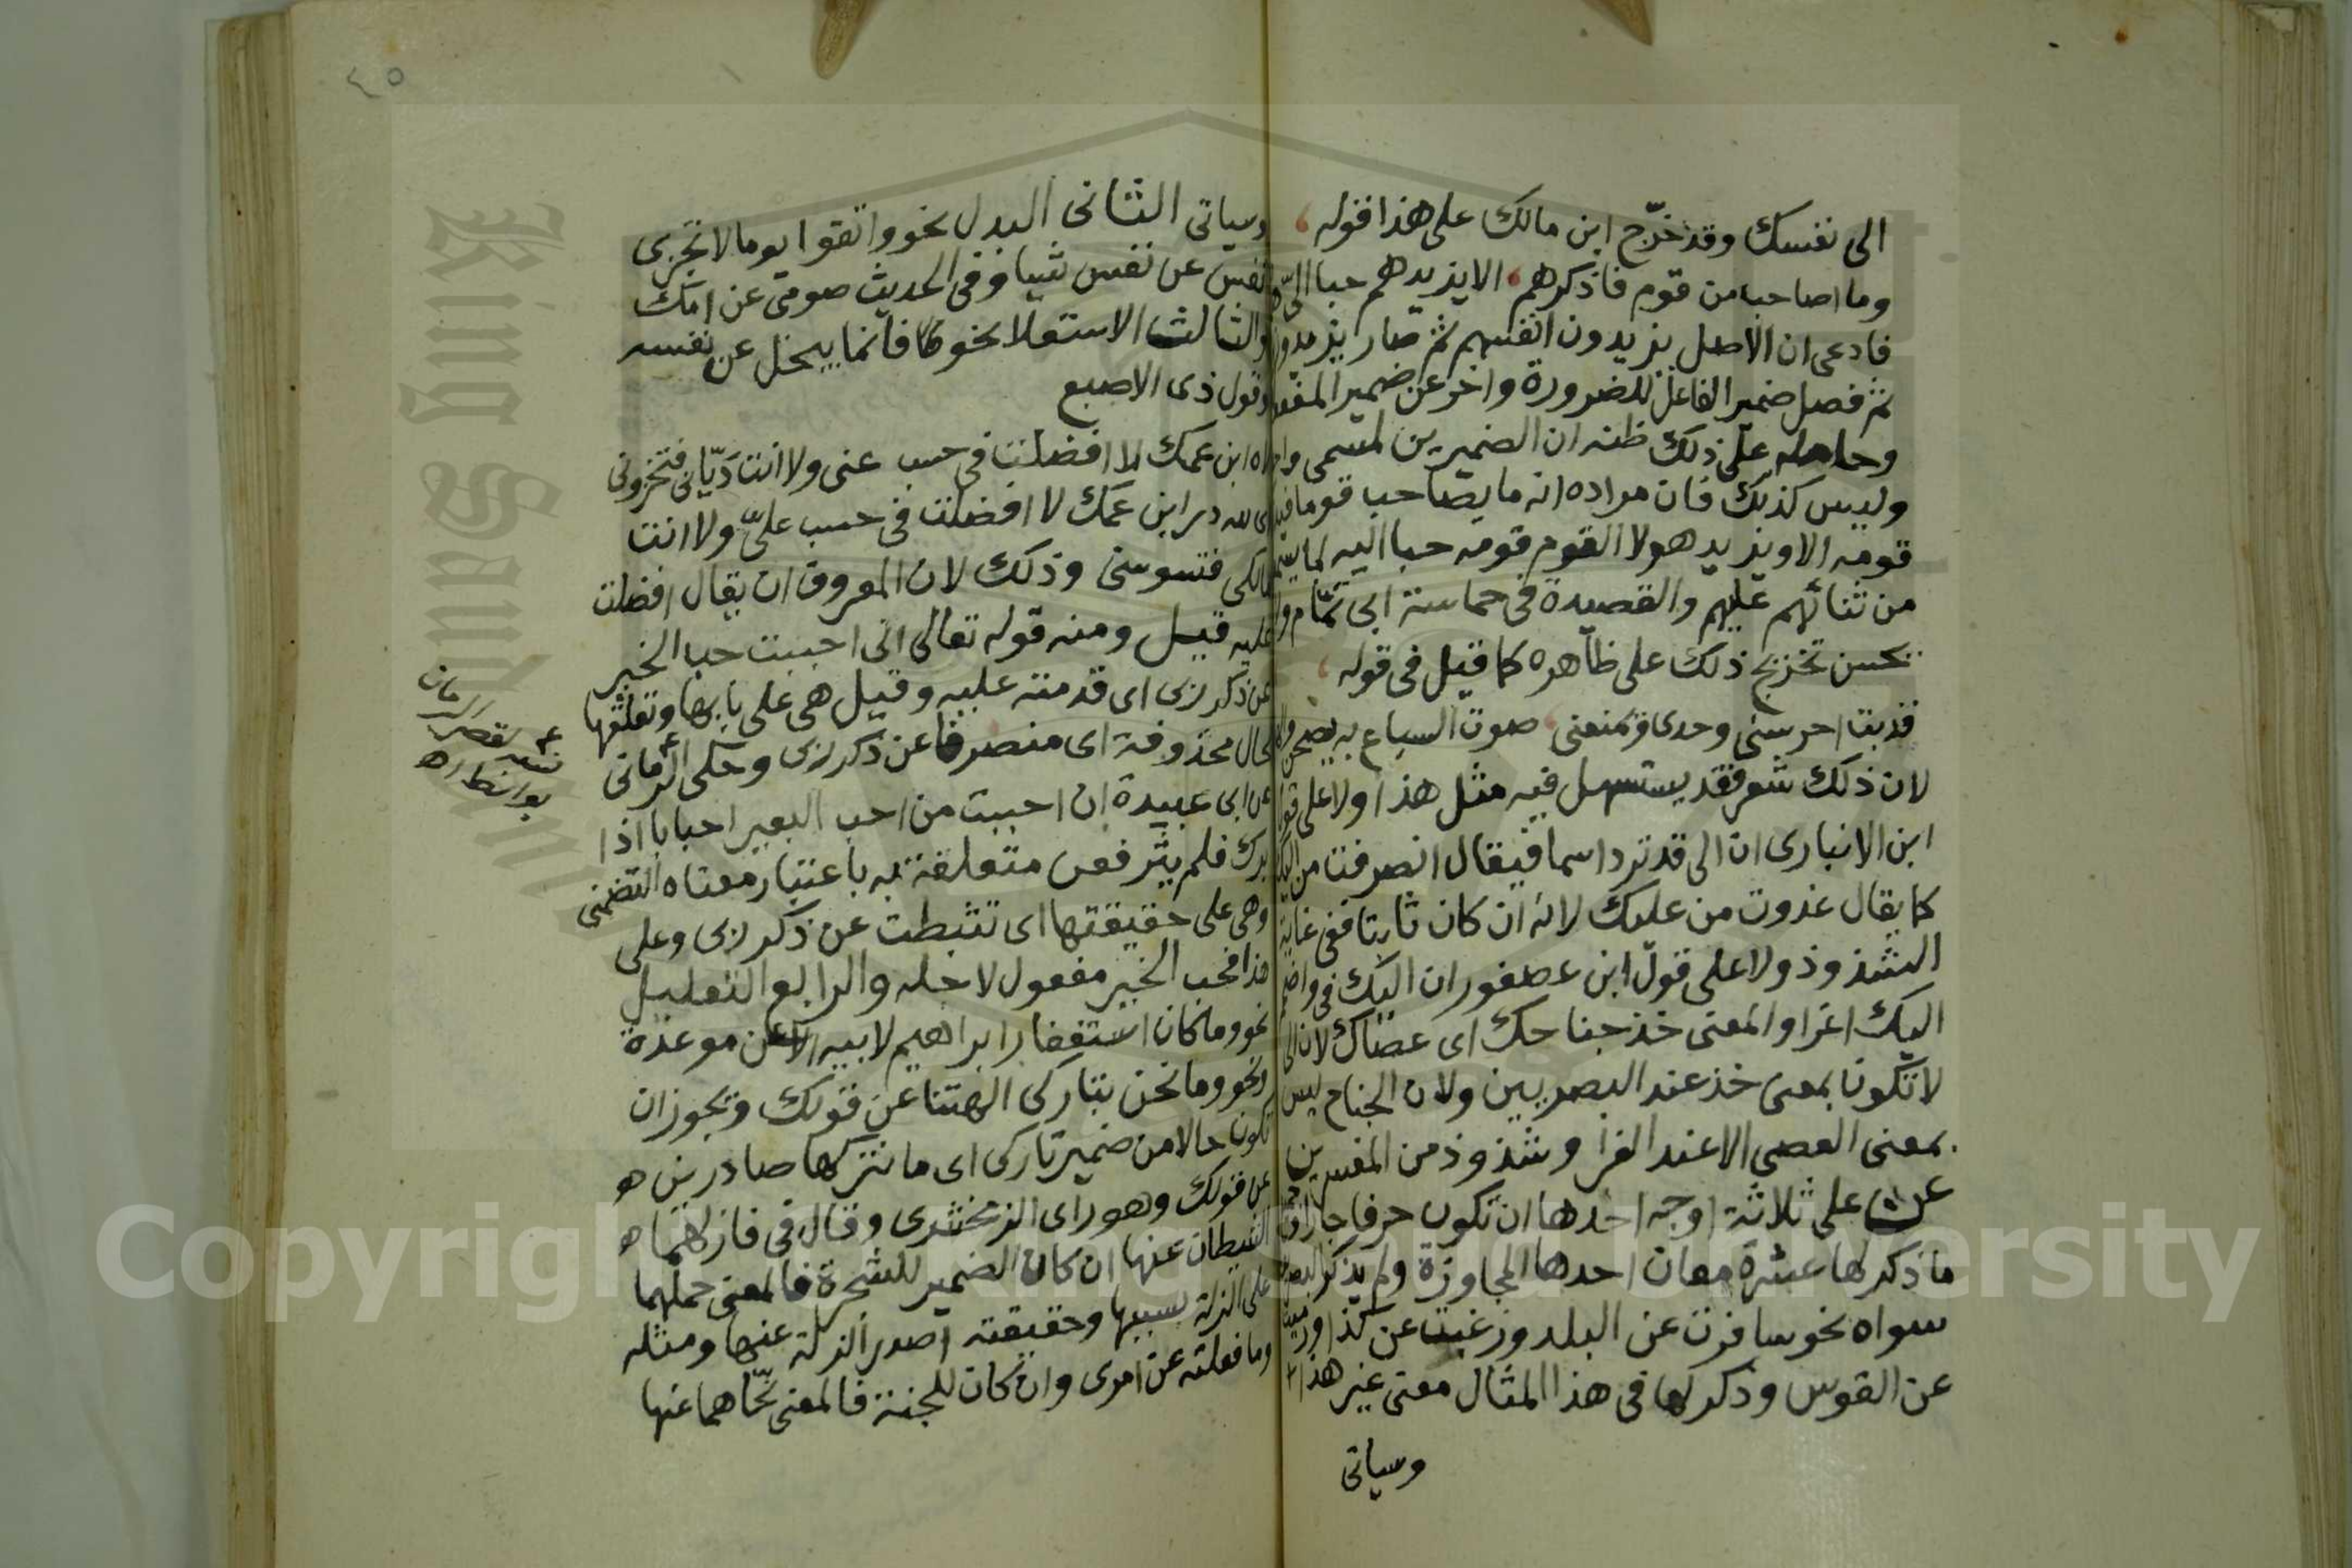 الى نفسك وقد خرّج ابن مالك على هذا قوله
وما اصاحب من قوم فاذكرهم الا يزيدهم حبا الىّ
فادعى ان الاصل يزيدون انفسهم ثم صار يزيدون
ثم فصل ضمير الفاعل للضرورة واخر عن ضمير المفعو
وحامله على ذلك ظنه ان الضميرين لمسمى واحد
وليس كذلك فان مراده انه ما يصاحب قوما فيذ
قومه الا ويزيد هولا القوم قومه حبا اليه لما يسمع
من ثنائهم عليهم والقصيدة فى حماسة ابى تمّام ولا
يحسن تخريج ذلك على ظاهره كما قيل فى قوله
قد بت احرسنى وحدى ويمنعنى صوت السباع به يضبحن
لان ذلك شعر فقد يستسهل فيه مثل هذا ولا على قول
ابن الانبارى ان الى قد ترد اسما فيقال انصرفت من اليك
كما يقال غدوت من عليك لانه ان كان ثابتا ففى غاية
الشذوذ ولا على قول ابن عصفور ان اليك فى واضمم
اليك اغرا والمعنى خذ جناحك اى عصاك لان الى
لا تكون بمعنى خذ عند البصريين ولان الجناح ليس
بمعنى العصى الا عند الفرا وشذوذ من المفسرين
عن على ثلاثة اوجه احدها ان تكون حرفا جارا
ما ذكر لها عشرة معان احدها المجاوزة ولم يذكر البصر
سواه نحو سافرت عن البلد ورغبت عن كذا ورميت
عن القوس وذكر لها فى هذا المثال معنى غير هذا
وسياتى
٤٥
وسياتى الثانى البدل نحو واتقوا يوما لا تجزى
نفس عن نفس شيا وفى الحديث صومى عن امك
والثالث الاستعلا نحو فانما يبخل عن نفسه
وقول ذى الاصبع
لاه ابن عمك لا افضلت فى حسب عنى ولا انت ديّانى فتخزونى
اى لله در ابن عمك لا افضلت فى حسب علىّ ولا انت
مالكى فتسوسنى وذلك لان المعروف ان يقال افضلت
عليه قيل ومنه قوله تعالى انى احببت حب الخير
عن ذكر ربى اى قدمته عليه وقيل هى على بابها وتعلقها
بحال محذوفة اى منصرفا عن ذكر ربى وحكى الرمانى
عن ابى عبيدة ان احببت من احب البعير احبابا اذا
برك فلم يثر فعن متعلقة به باعتبار معناه التضمنى
وهى على حقيقتها اى تثبطت عن ذكر ربى وعلى
هذا فحب الخير مفعول لاجله والرابع التعليل
نحو وما كان استغفار ابراهيم لابيه الا عن موعدة
ونحو وما نحن بتاركى الهتنا عن قولك ويجوز ان
تكون حالا من ضمير تاركى اى ما نتركها صادرين
عن قولك وهو راى الزمخشرى وقال فى فازلهما
الشيطان عنها ان كان الضمير للشجرة فالمعنى حملهما
على الزلة بسببها وحقيقته اصدر الزلة عنها ومثله
وما فعلته عن امرى وان كان للجنة فالمعنى نحّاهما عنها